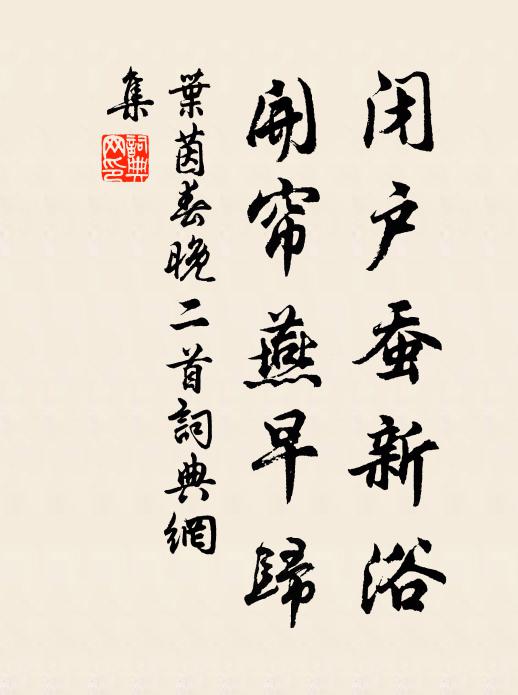 闭户蚕新浴
開帘燕早歸
葉茵春晚二首詞典網
集
詞典
网印